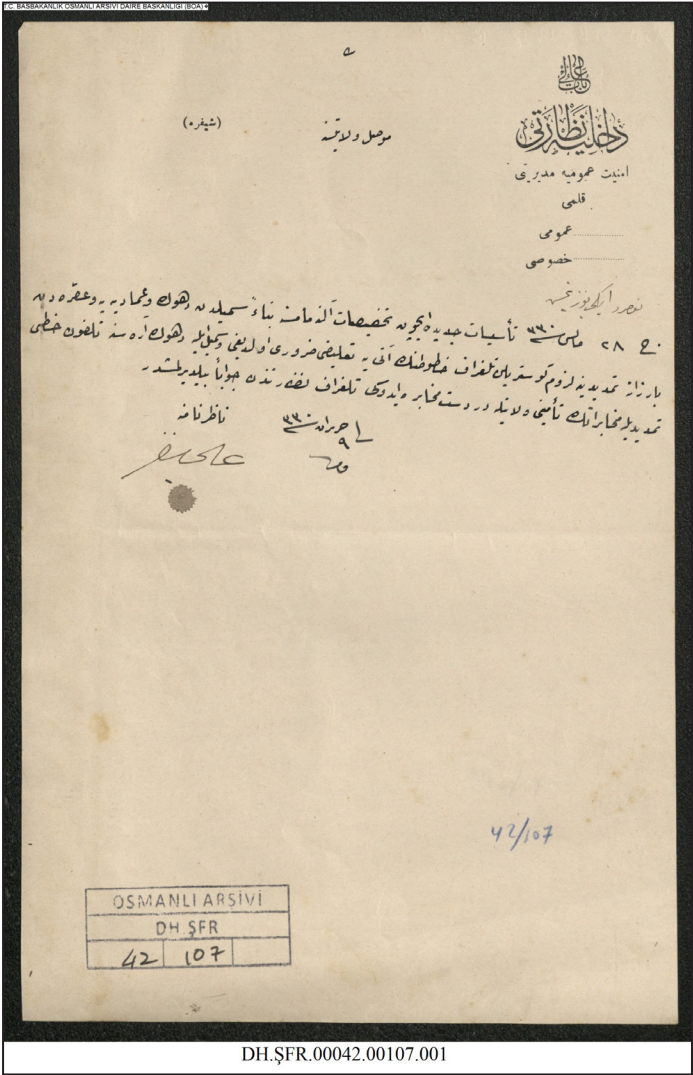 T.C. BASBAKANLIK OSMANLI ARSIVI DAIRE BASKANLIGI (BOA)
باب عالی
داخلیه نظارتی
امنیت عمومیه مدیریتی
قلمی
عمومی
خصوصی
موصل ولایتنه
(شیفره)
ج ٢٨ مایس ٣٣٠ تأسیسات جدیده ایچون تخصیصات آلنه‌مامسنه بناءً سمیلدن دهوك وعمادیه یه وعقره دن
بارزانه تمدیدینه لزوم كوستریلن تلغراف خطوطنك آتی یه تعلیقی ضروری اولدیغی وسمیل ایله دهوك آره سنه تلفون خطی
تمدیدیله مخابراتك تأمینی ولایتله در دست مخابره ایدوكی تلغراف نظارتندن جواباً بیلدیرلمشدر
فی ٩ حزیران ٣٣٠
ناظر نامنه
42/107
OSMANLI ARŞİVİ
DH ŞFR
42 107
DH.ŞFR.00042.00107.001